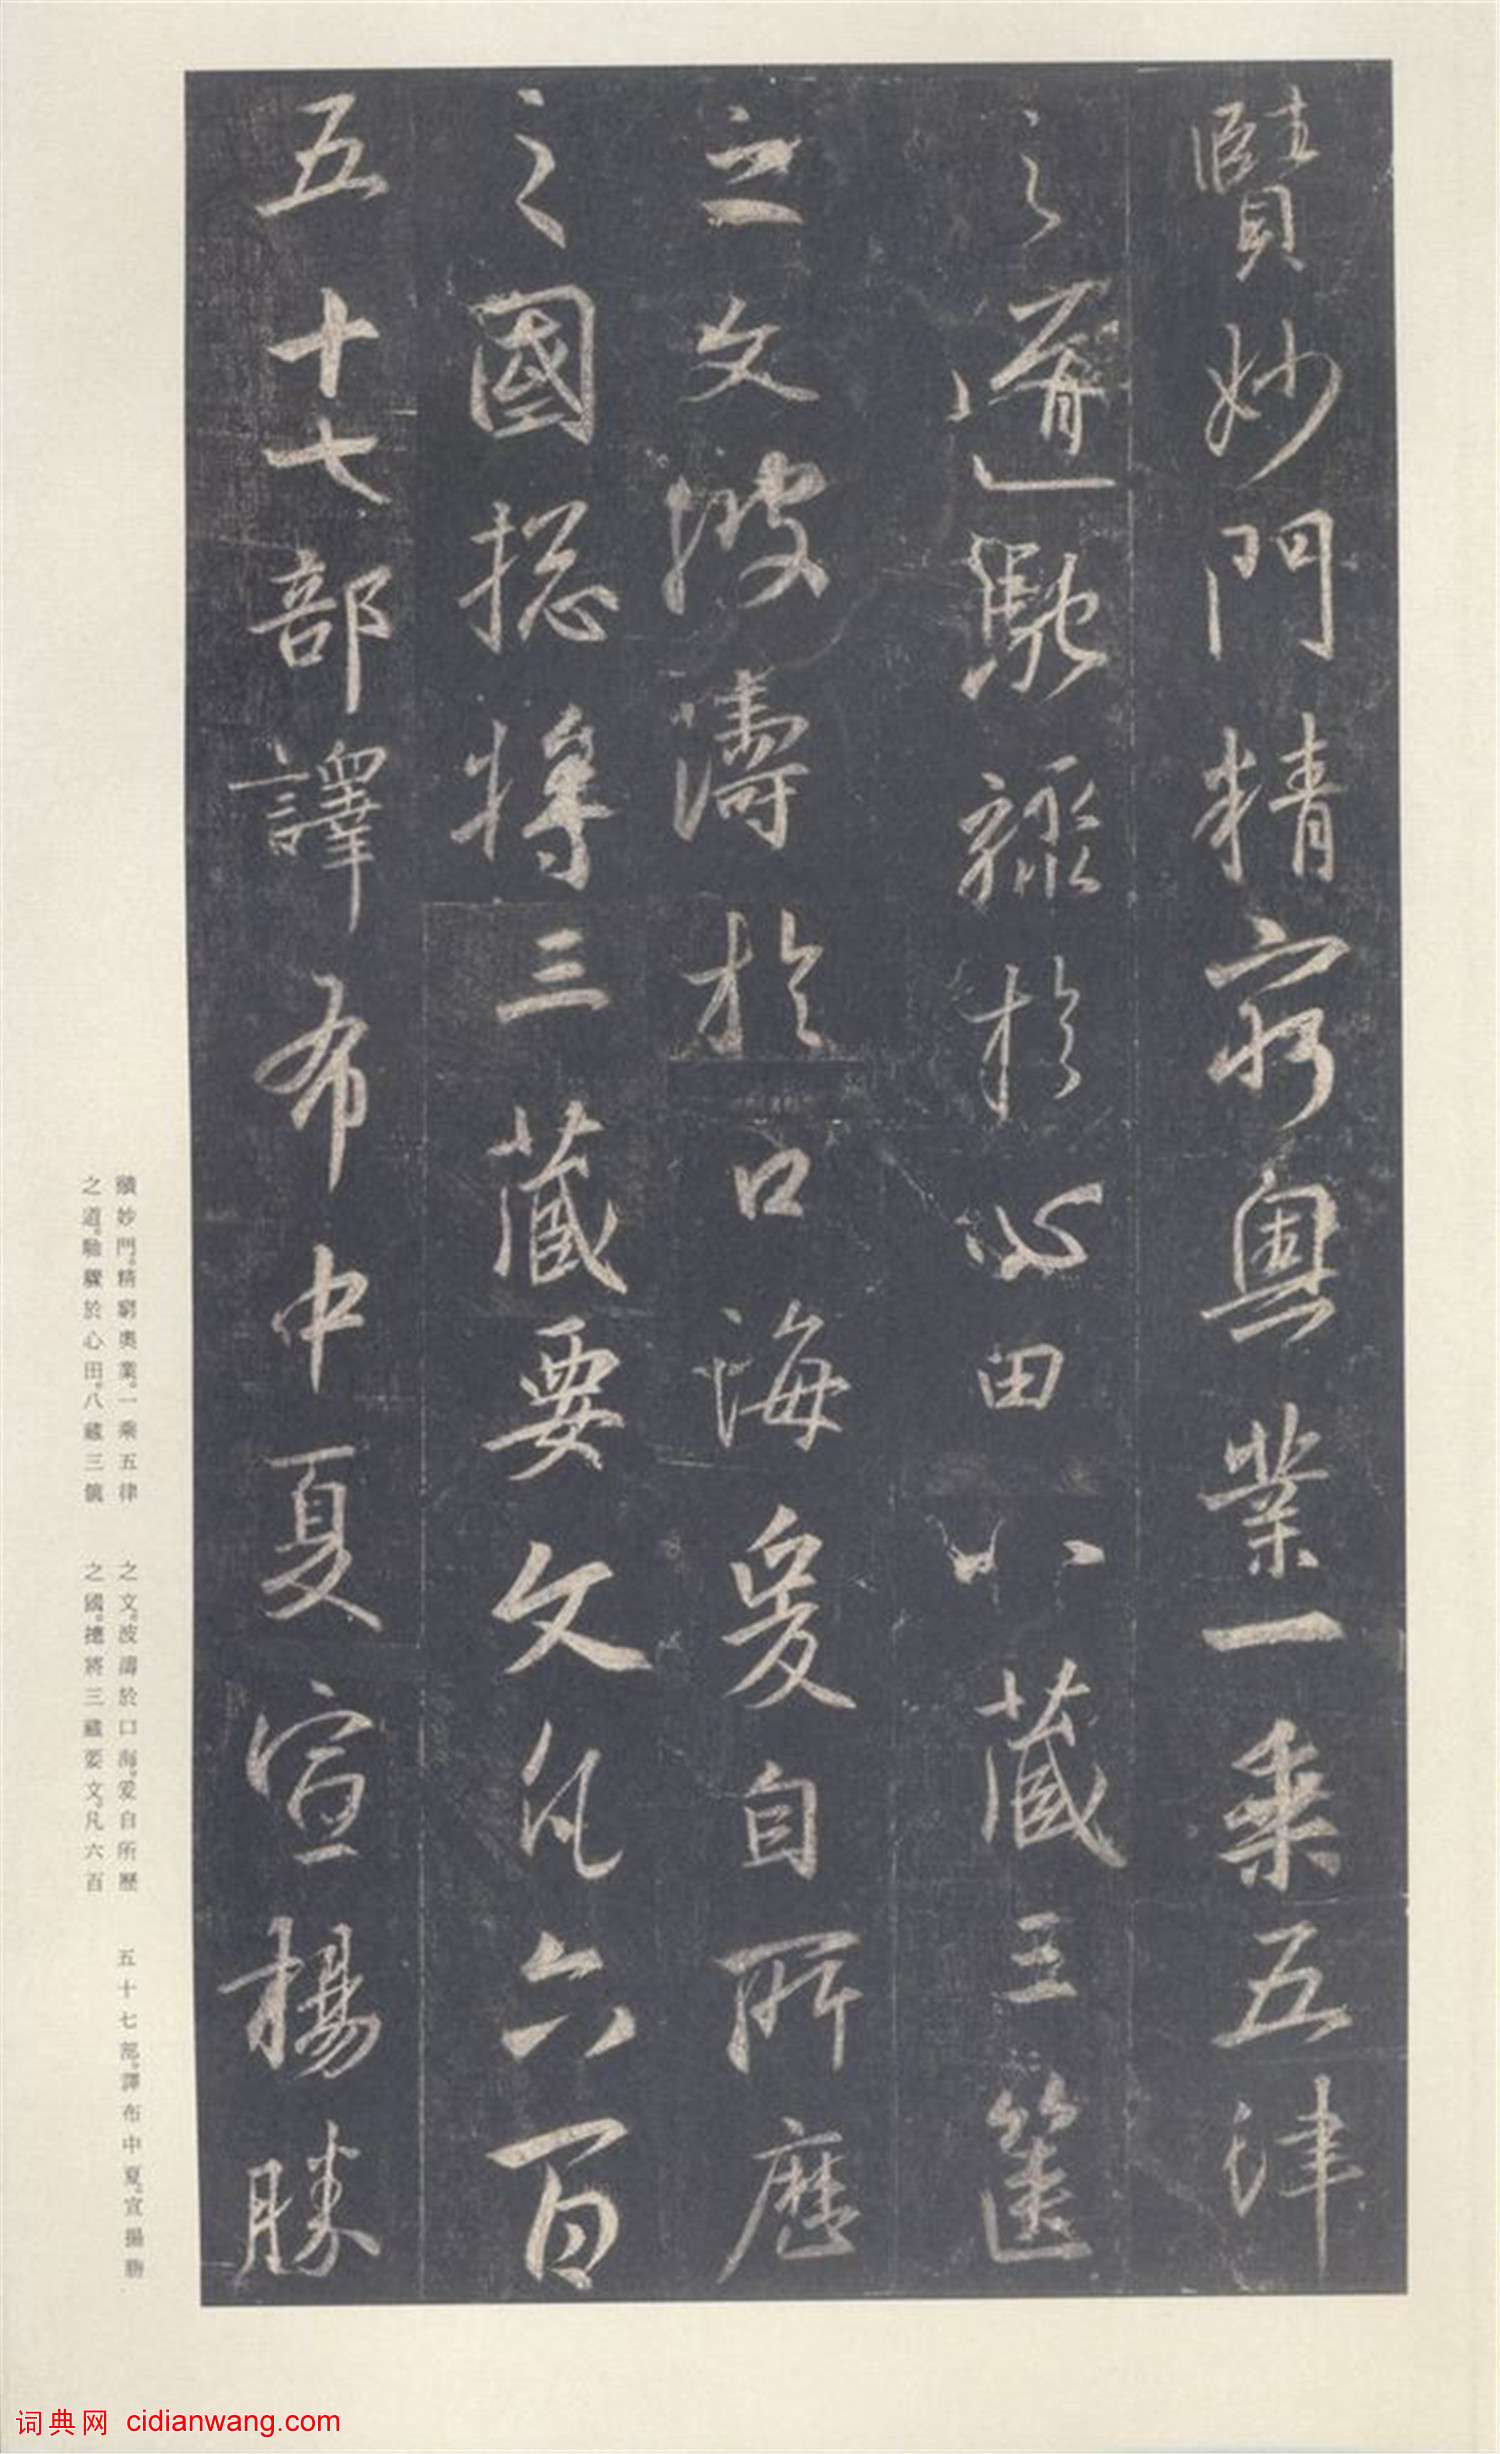 賾妙門精窮奧業一乘五律
之道馳驟於心田八藏三篋
之文波濤於口海爰自所歷
之國揔將三藏要文凡六百
五十七部譯布中夏宣揚勝
賾妙門。精窮奧業。一乘五律
之道。馳驟於心田。八藏三篋
之文。波濤於口海。爰自所歷
之國。摠將三藏要文。凡六百
五十七部。譯布中夏。宣揚勝
词典网 cidianwang.com